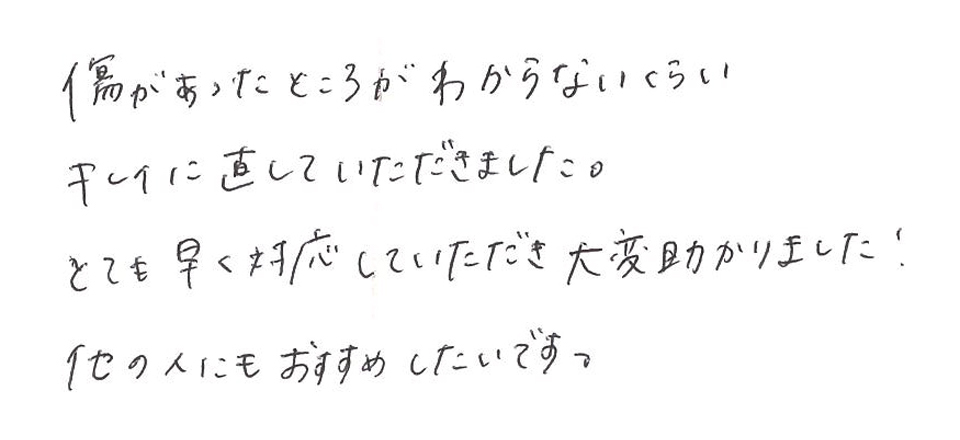 傷があったところがわからないくらい
キレイに直していただきました。
とても早く対応していただき大変助かりました!
他の人にもおすすめしたいです。